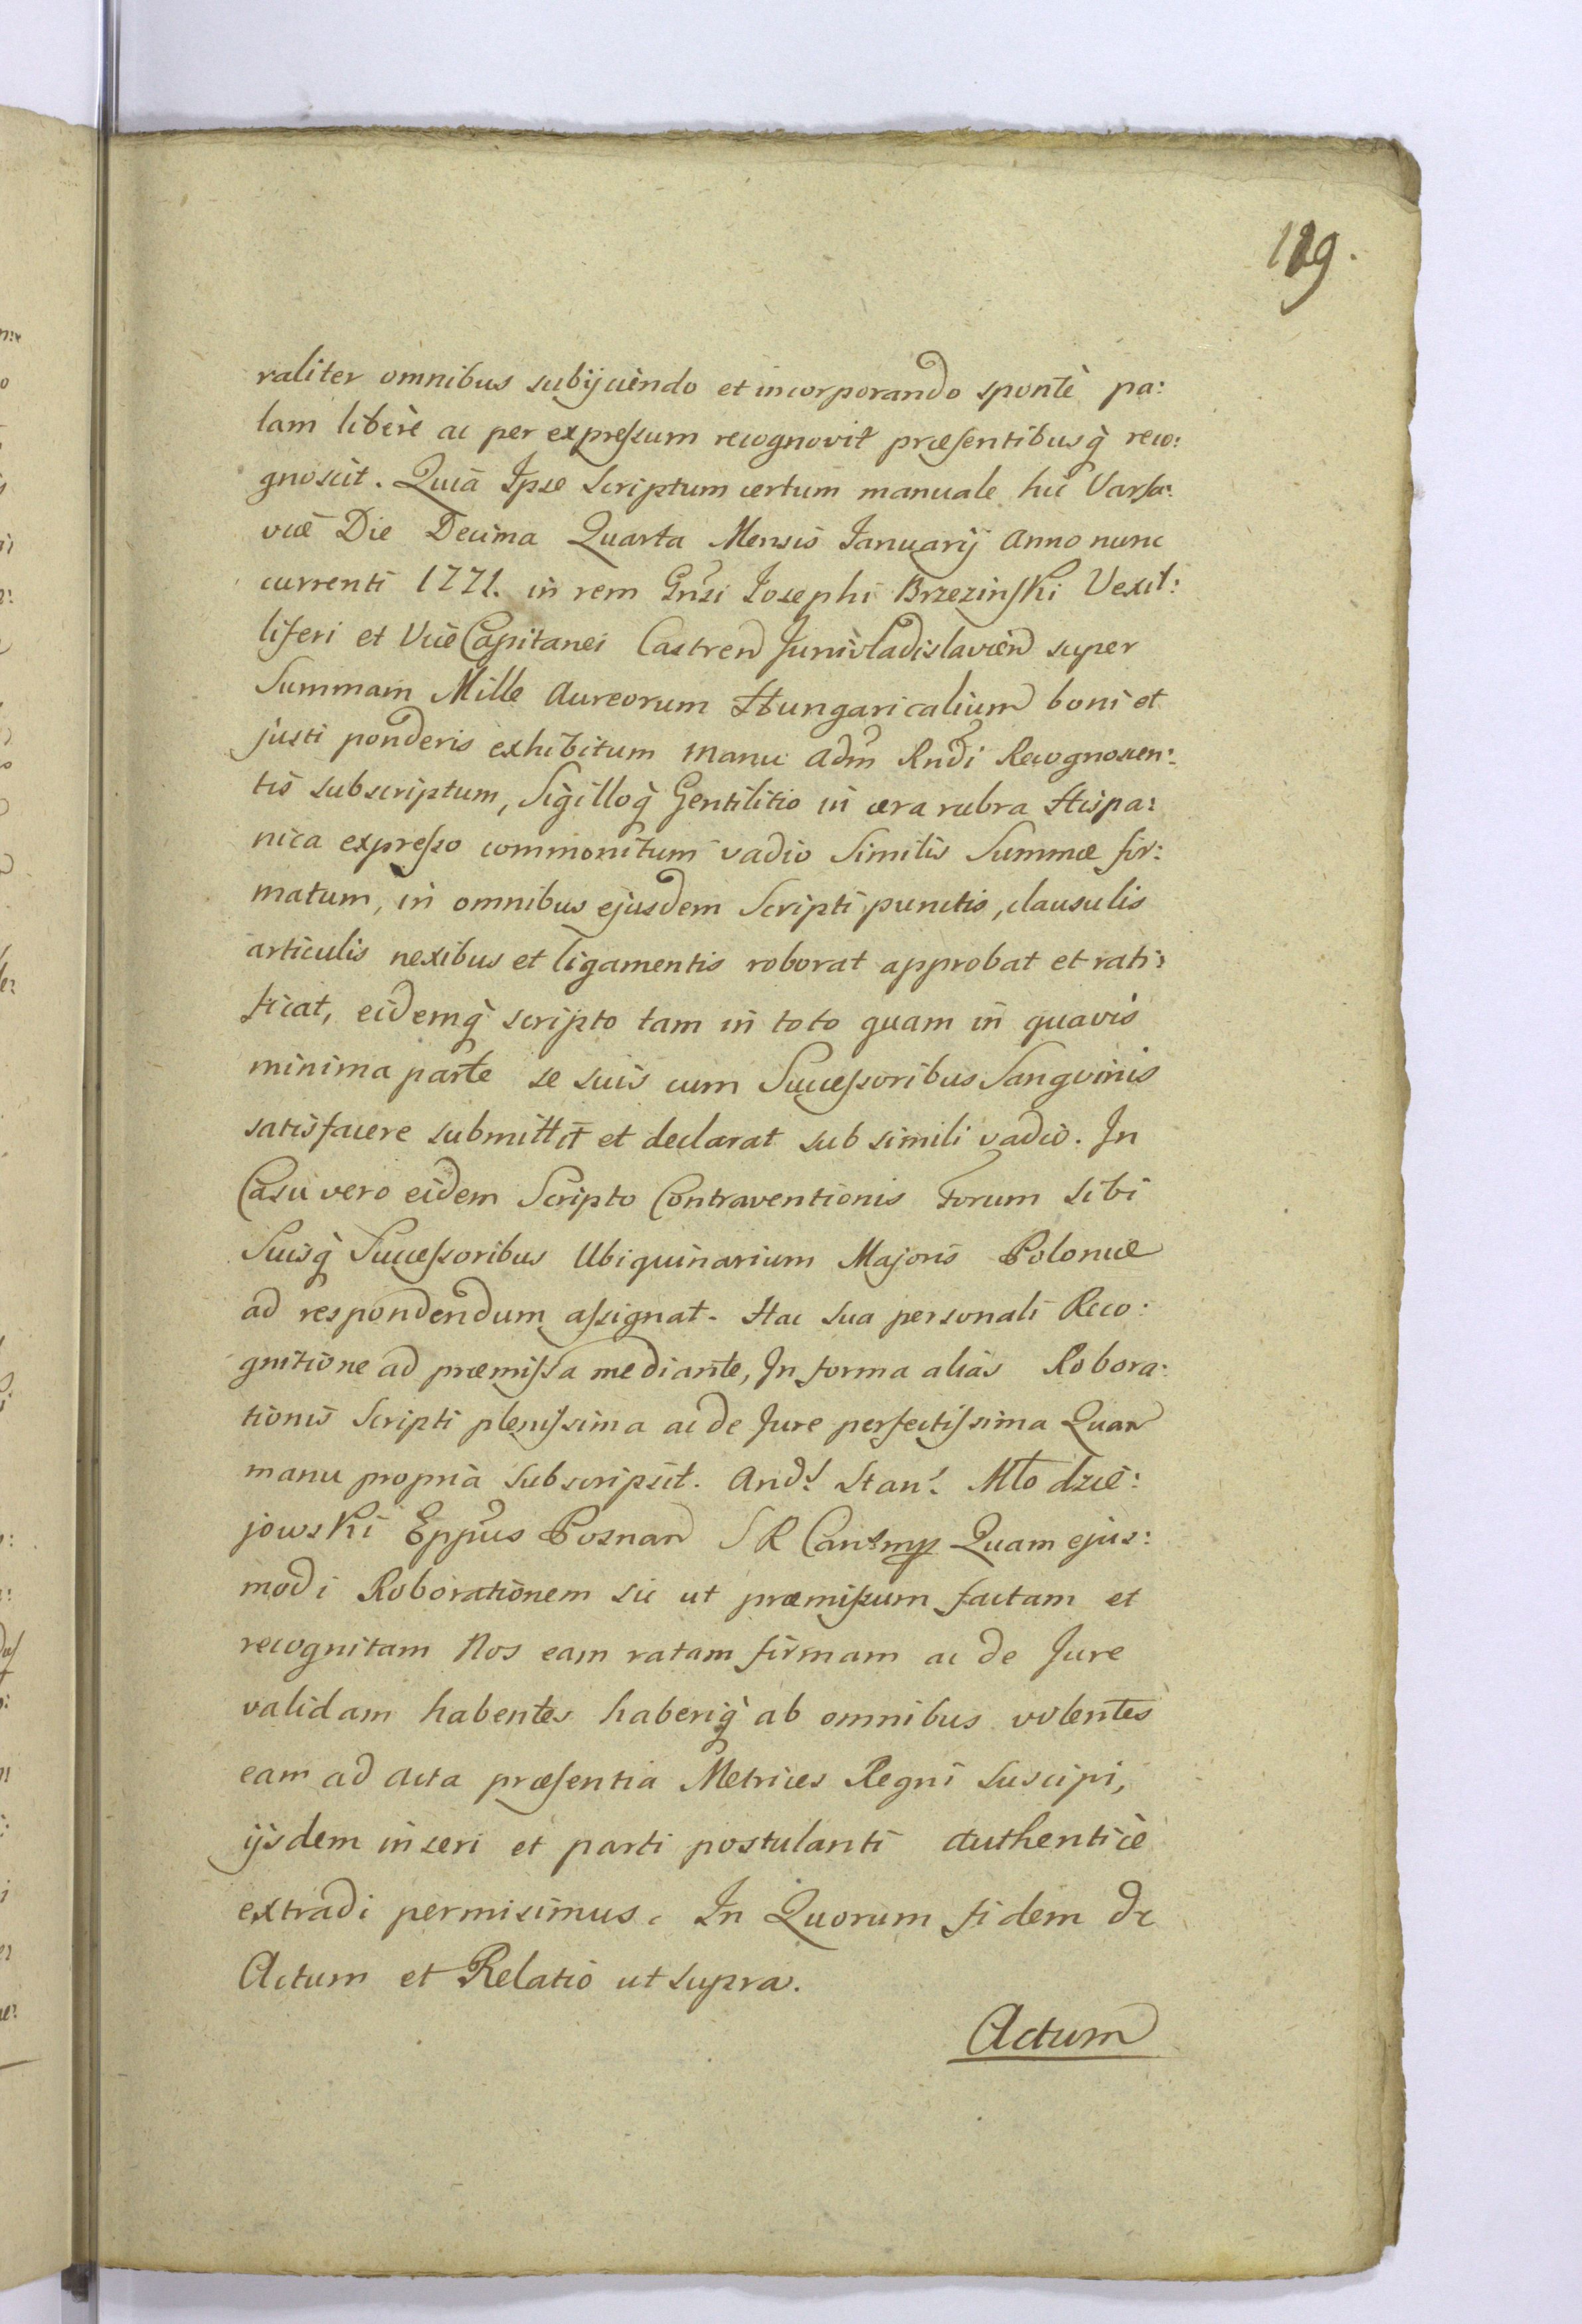 189.
raliter omnibus subijciendo et incorporando spontè pa:
lam liberè ac per expreſsum recognovit præsentibusq̀ reco:
gnoscit. Quià Ipse Scriptum certum manuale hic Varsa:
viæ Die Decima Quarta Mensis Ianuarij Anno nunc
currenti 1771. in rem Gnsi Iosephi Brzezinſki Vexil:
liferi et ViceCapitanei Castren Junivladislavien super
Summam Mille Aureorum Hungaricalium boni et
justi ponderis exhibitum manu Adm Rndi Recognoscen:
tis subscriptum, Sigilloq̀ Gentilitio in cera rubra Hispa:
nica expreſso communitum vadio Similis Summæ fir:
matum, in omnibus ejusdem Scripti punctis, clausulis
articulis nexibus et ligamentis roborat approbat et rati:
ficat, eidemq̀ scripto tam in toto quam in quavis
minima parte se suis cum Succeſsoribus Sangvinis
satisfacere submittit et declarat sub simili vadio. In
Casu vero eidem Scripto Contraventionis Forum Sibi
Suisq̀ Succeſsoribus Ubiquinarium Majoris Poloniæ
ad respondendum aſsignat. Hac sua personali Reco:
gnitione ad præmiſsa mediante, In forma aliàs Robora:
tionis Scripti pleniſsima ac de Jure perfectiſsima Quam
manu proprià Subscripsit. And: Stan: Młodzie:
jowski Eppus Posnan S R Can: mp Quam ejus:
modi Roborationem sic ut præmiſsum factam et
recognitam Nos eam ratam firmam ac de Jure
validam habentes haberiq̀ ab omnibus volentes
eam ad Acta præsentia Metrices Regni Suscipi,
ijsdem inseri et parti postulanti Authenticè
extradi permisimus. In Quorum fidem &c
Actum et Relatio ut supra.
Actum